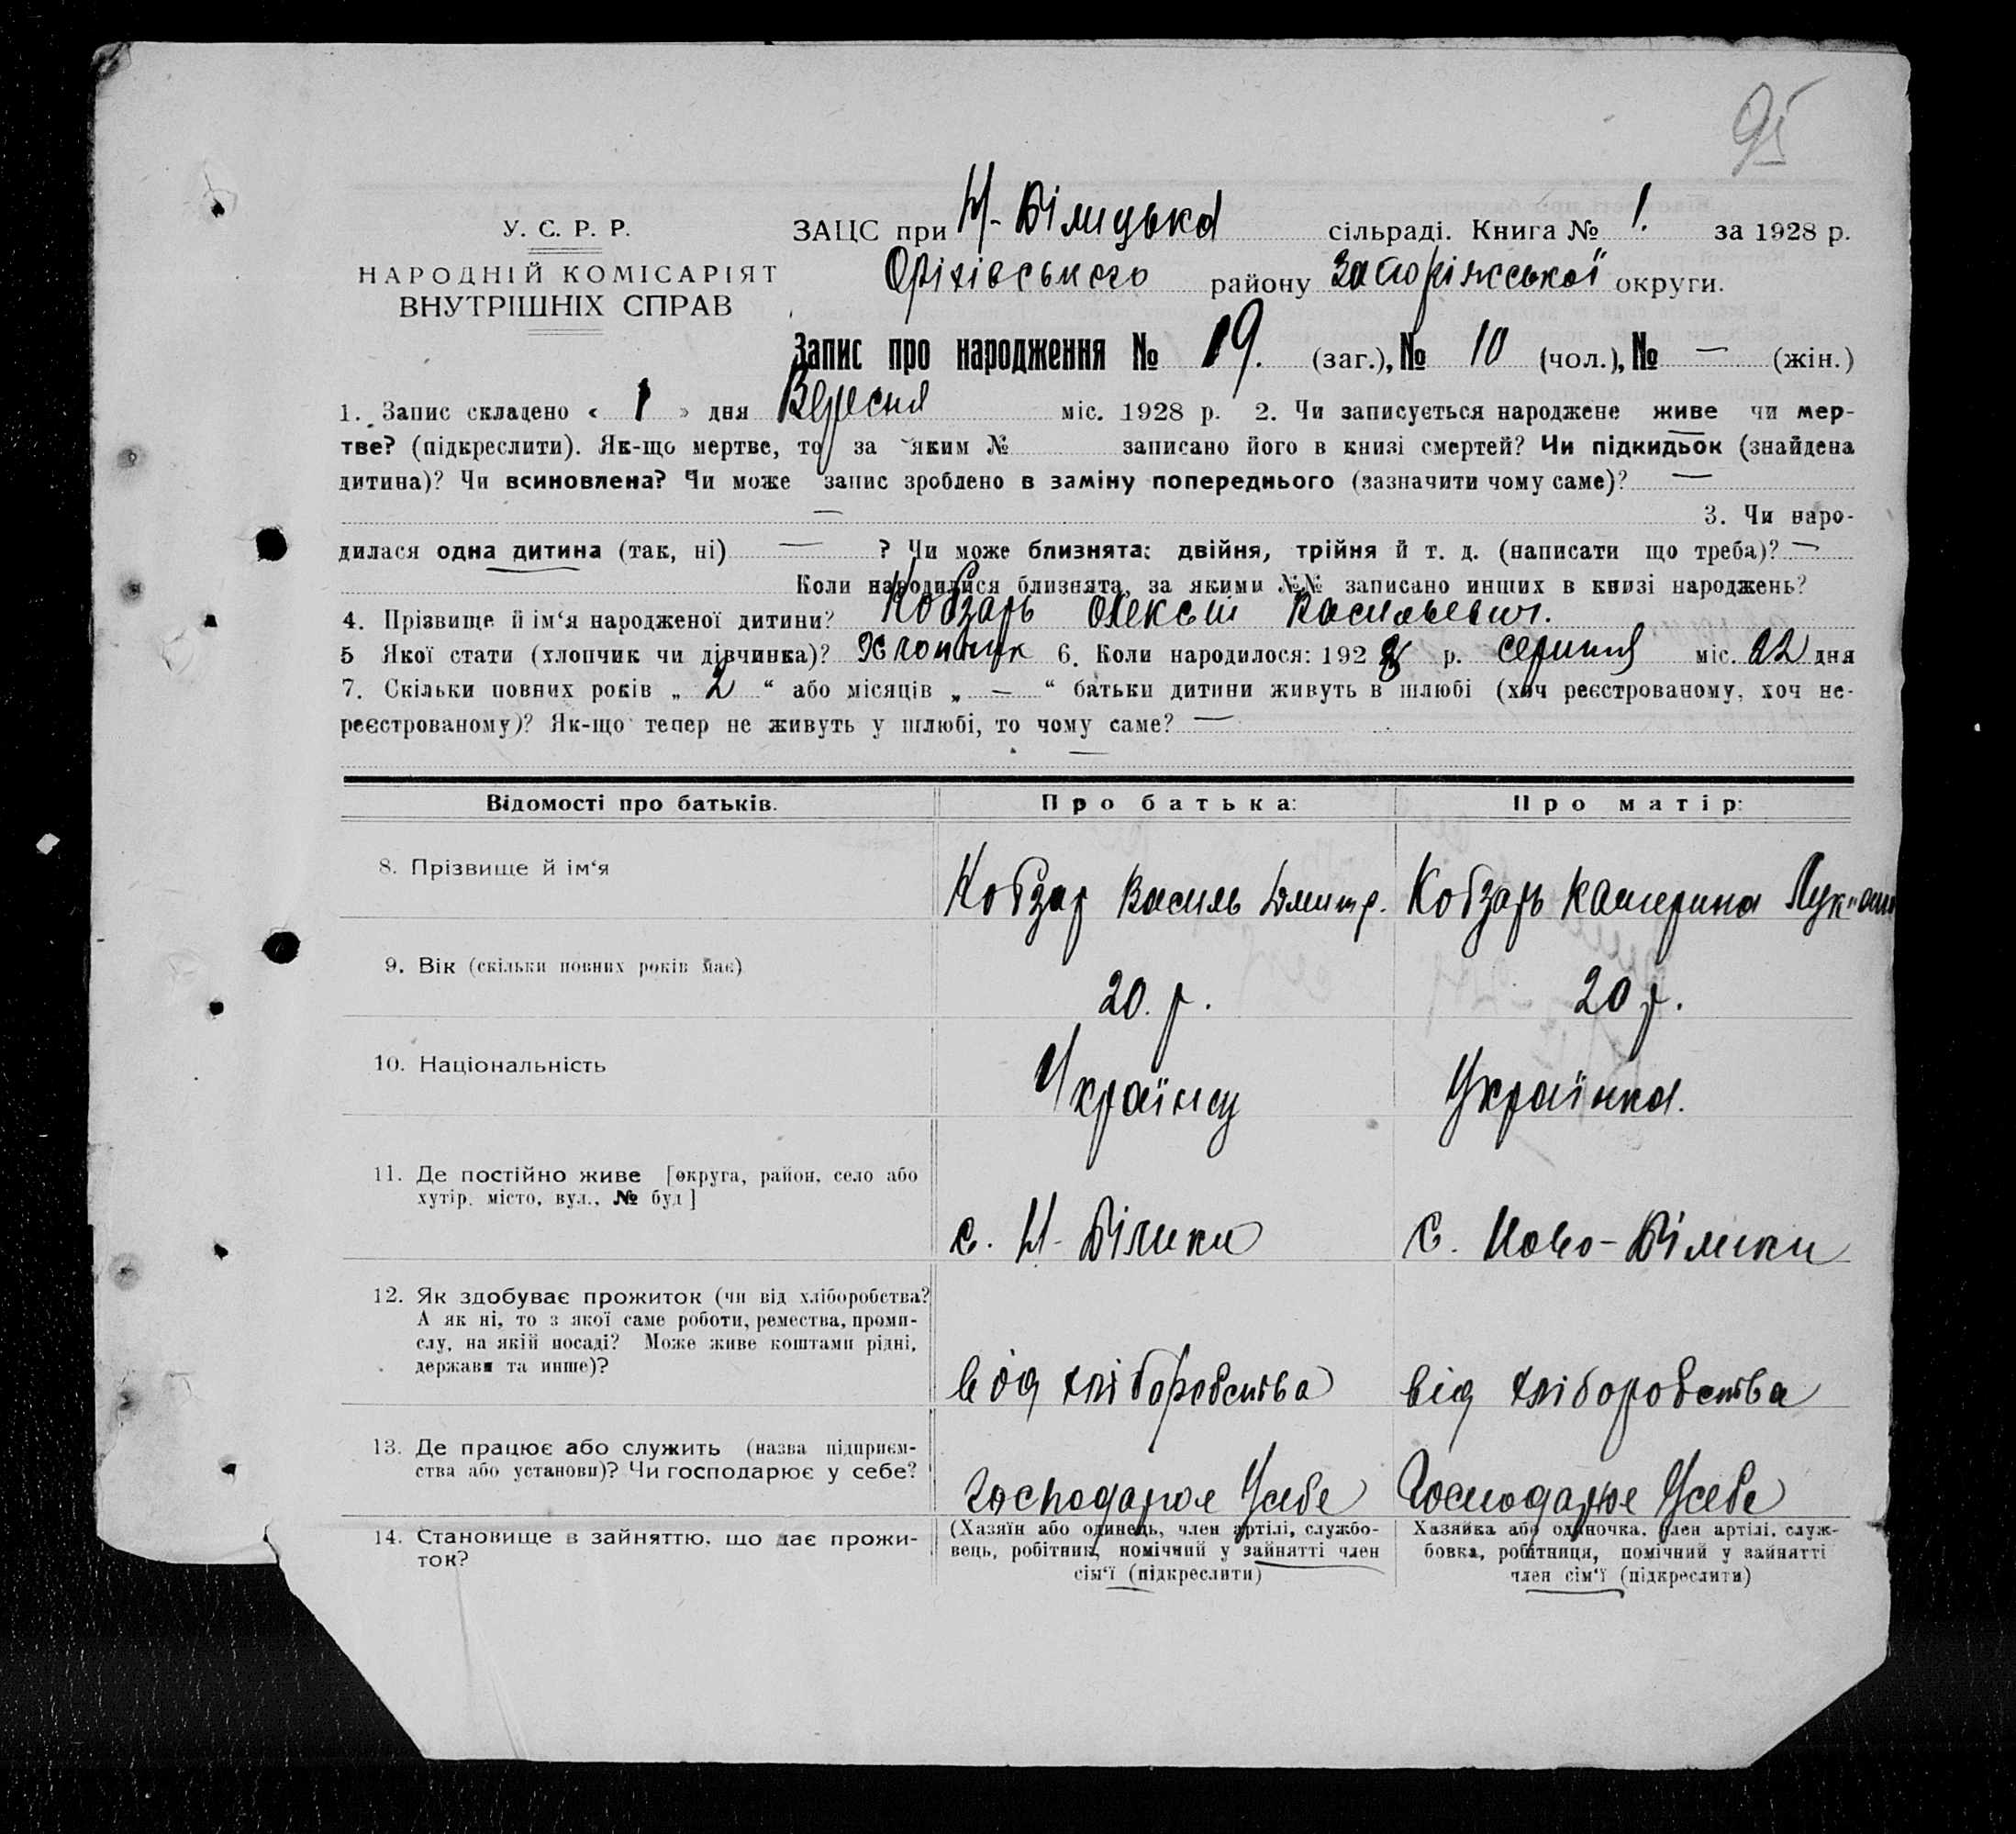 95
У. С. Р. Р.
НАРОДНІЙ КОМІСАРІЯТ
ВНУТРІШНІХ СПРАВ
ЗАЦС при Н-Білицька сільраді. Книга № 1. за 1928 р.
Оріхівського району Запоріжської округи.
Запис про народження № 19. (заг.), № 10 (чол.), № — (жін.)
1. Запис складено « 1 » дня Вересня міс. 1928 р. 2. Чи записується народжене живе чи мер-
тве? (підкреслити). Як-що мертве, то за яким № записано його в книзі смертей? Чи підкидьок (знайдена
дитина)? Чи всиновлена? Чи може запис зроблено в заміну попереднього (зазначити чому саме)? —
— 3. Чи наро-
дилася одна дитина (так, ні) — ? Чи може близнята: двійня, трійня й т. д. (написати що треба)? —
Коли народилися близнята, за якими №№ записано инших в книзі народжень?
4. Прізвище й ім‘я народженої дитини? Кобзарь Олексій Васильевич.
5 Якої стати (хлопчик чи дівчинка)? Хлопчик 6. Коли народилося: 1928 р. серпня міс. 22 дня
7. Скільки повних років „ 2 “ або місяців „ — “ батьки дитини живуть в шлюбі (хоч реєстрованому, хоч не-
реєстрованому)? Як-що тепер не живуть у шлюбі, то чому саме? —
—
Відомості про батьків. Про батька: Про матір:
8. Прізвище й ім‘я Кобзар Василь Дмитр. Кобзарь Катерина
9. Вік (скільки повних років має) 20. р. 20 р.
10. Національність Українец Українка.
11. Де постійно живе [округа, район, село або
хутір, місто, вул., № буд] с. Н-Білики с. Ново-Білики
12. Як здобуває прожиток (чи від хліборобства?
А як ні, то з якої саме роботи, ремества, проми-
слу, на якій посаді? Може живе коштами рідні,
держави та инше)? від хліборобства від хліборобства
13. Де працює або служить (назва підприєм-
ства або установи)? Чи господарює у себе? Господарює Усебе Господарює Усебе
14. Становище в зайняттю, що дає прожи-
ток?
(Хазяїн або одинець, член артілі, службо-
вець, робітник, помічний у зайнятті член
сім‘ї (підкреслити)
Хазяйка або одиночка, член артілі, служ-
бовка, робітниця, помічний у зайнятті
член сім‘ї (підкреслити)